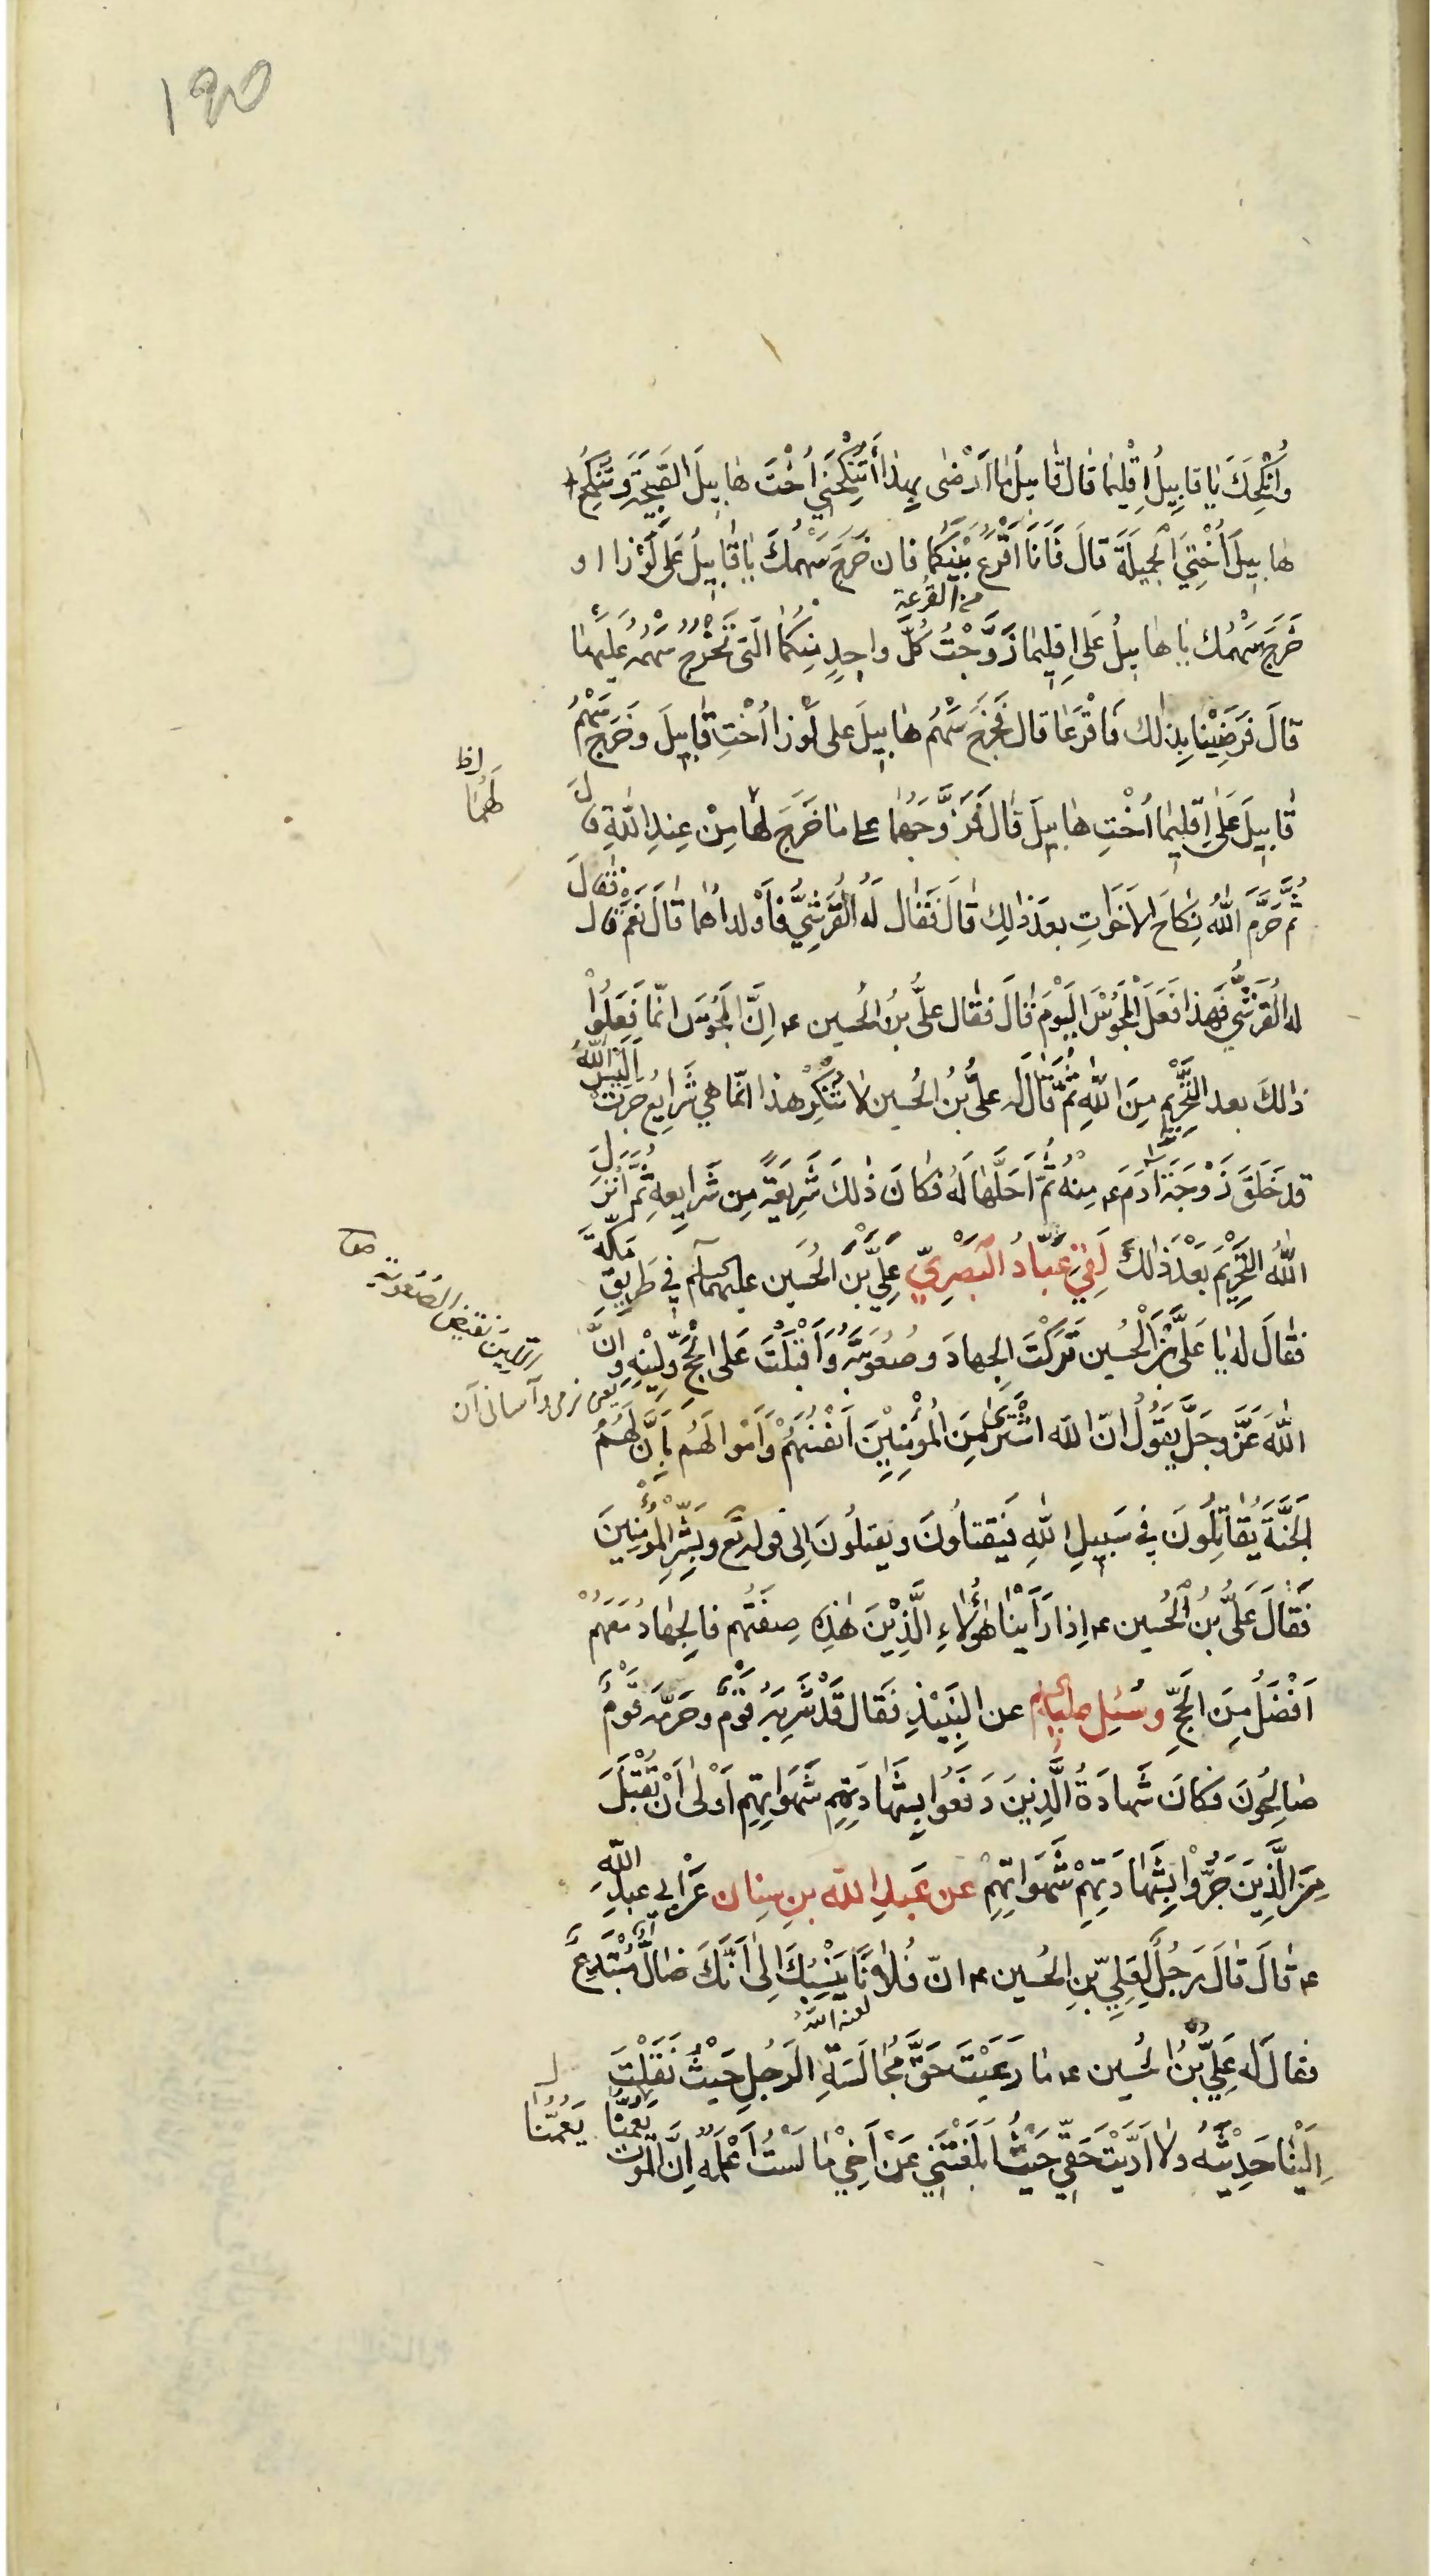 ۱۹۵
وَأُنْكِحُكَ يَا قَابِيلُ إِقْلِيمَا قَالَ قَابِيلُ مَا أَرْضَى بِهٰذَا أَتُنْكِحُنِي أُخْتَ هَابِيلَ الْقَبِيحَةَ وَتُنْكِحُ
هَابِيلَ أُخْتِيَ الْجَمِيلَةَ قَالَ فَأَنَا أَقْرَعُ بَيْنَكُمَا فَإِنْ خَرَجَ سَهْمُكَ يَا قَابِيلُ عَلَى لَوْزَا او
من القرعة
خَرَجَ سَهْمُكَ يَا هَابِيلُ عَلَى إِقْلِيمَا زَوَّجْتُ كُلَّ وَاحِدٍ مِنْكُمَا الَّتِي تَخْرُجُ سَهْمُهُ عَلَيْهَا
قَالَ فَرَضِيْنَا بِذٰلِكَ فَاقْرَعَا قَالَ فَخَرَجَ سَهْمُ هَابِيلَ عَلَى لَوْزَا أُخْتِ قَابِيلَ وَخَرَجَ سَهْمُ
لهما
قَابِيلَ عَلَى إِقْلِيمَا أُخْتِ هَابِيلَ قَالَ فَزَوَّجَهُمَا عَلَى مَا خَرَجَ لَهَا مِنْ عِنْدِ اللّٰهِ قَالَ
ثُمَّ حَرَّمَ اللّٰهُ نِكَاحَ الْأَخَوَاتِ بَعْدَ ذٰلِكَ قَالَ فَقَالَ لَهُ الْقُرَشِيُّ فَأَوْلَدَاهُمَا قَالَ نَعَمْ قَالَ فَقَالَ
لَهُ الْقُرَشِيُّ فَهٰذَا فَعَلَ الْمَجُوسُ الْيَوْمَ قَالَ فَقَالَ عَلِيُّ بْنُ الْحُسَيْنِ ع إِنَّ الْمَجُوسَ إِنَّمَا فَعَلُوا
ذٰلِكَ بَعْدَ التَّحْرِيمِ مِنَ اللّٰهِ ثُمَّ قَالَ لَهُ عَلِيُّ بْنُ الْحُسَيْنِ لَا تُنْكِرْ هٰذَا إِنَّمَا هِيَ شَرَايِعُ جَرَتْ أَلَيْسَ اللّٰهُ
قَدْ خَلَقَ زَوْجَةَ آدَمَ ع مِنْهُ ثُمَّ أَحَلَّهَا لَهُ فَكَانَ ذٰلِكَ شَرِيعَةً مِنْ شَرَايِعِهِ ثُمَّ أَنْزَلَ
اللّٰهُ التَّحْرِيمَ بَعْدَ ذٰلِكَ لَقِيَ عَبَّادُ الْبَصْرِيّ عَلِيَّ بْنَ الْحُسَيْنِ عليهما السلام فِي طَرِيقِ مَكَّةَ
اللين نقيض الصعوبة
فَقَالَ لَهُ يَا عَلِيَّ بْنَ الْحُسَيْنِ تَرَكْتَ الْجِهَادَ وَصُعُوبَتَهُ وَأَقْبَلْتَ عَلَى الْحَجِّ وَلِيْنِهِ وَإِنَّ
يعنى نرمى وآسانى آن
اللّٰهَ عَزَّ وَجَلَّ يَقُولُ إِنَّ اللّٰهَ اشْتَرَى مِنَ الْمُؤْمِنِينَ أَنْفُسَهُمْ وَأَمْوَالَهُمْ بِأَنَّ لَهُمُ
الْجَنَّةَ يُقَاتِلُونَ فِي سَبِيلِ اللّٰهِ فَيَقْتُلُونَ وَيُقْتَلُونَ إِلَى قوله تع وَبَشِّرِ الْمُؤْمِنِينَ
فَقَالَ عَلِيُّ بْنُ الْحُسَيْنِ ع إِذَا رَأَيْنَا هٰؤُلَاءِ الَّذِيْنَ هٰذِهِ صِفَتُهُمْ فَالْجِهَادُ مَعَهُمْ
أَفْضَلُ مِنَ الْحَجِّ وَسُئِلَ عليه السلام عَنِ النَّبِيْذِ فَقَالَ قَدْ شَرِبَهُ قَوْمٌ وَحَرَّمَهُ قَوْمٌ
صَالِحُونَ فَكَانَ شَهَادَةُ الَّذِينَ دَفَعُوا بِشَهَادَتِهِمْ شَهَوَاتِهِمْ أَوْلَى أَنْ تُقْبَلَ
مِنَ الَّذِينَ جَرُّوا بِشَهَادَتِهِمْ شَهَوَاتِهِمْ عَنْ عَبْدِ اللّٰهِ بْنِ سِنَانٍ عَنْ أَبِي عَبْدِ اللّٰهِ
ع قَالَ قَالَ رَجُلٌ لِعَلِيِّ بْنِ الْحُسَيْنِ ع إِنَّ فُلَانًا يَنْسِبُكَ إِلَى أَنَّكَ ضَالٌّ مُبْتَدِعٌ
لعنه الله
فَقَالَ لَهُ عَلِيُّ بْنُ الْحُسَيْنِ ع مَا رَعَيْتَ حَقَّ مُجَالَسَةِ الرَّجُلِ حَيْثُ نَقَلْتَ
إِلَيْنَا حَدِيْثَهُ وَلَا أَدَّيْتَ حَقِّي حَيْثُ أَبْلَغْتَنِي عَنْ أَخِي مَا لَسْتُ أَعْلَمُهُ إِنَّ الْمَوْتَ يَعُمُّنَا
يَعُمُّنَا